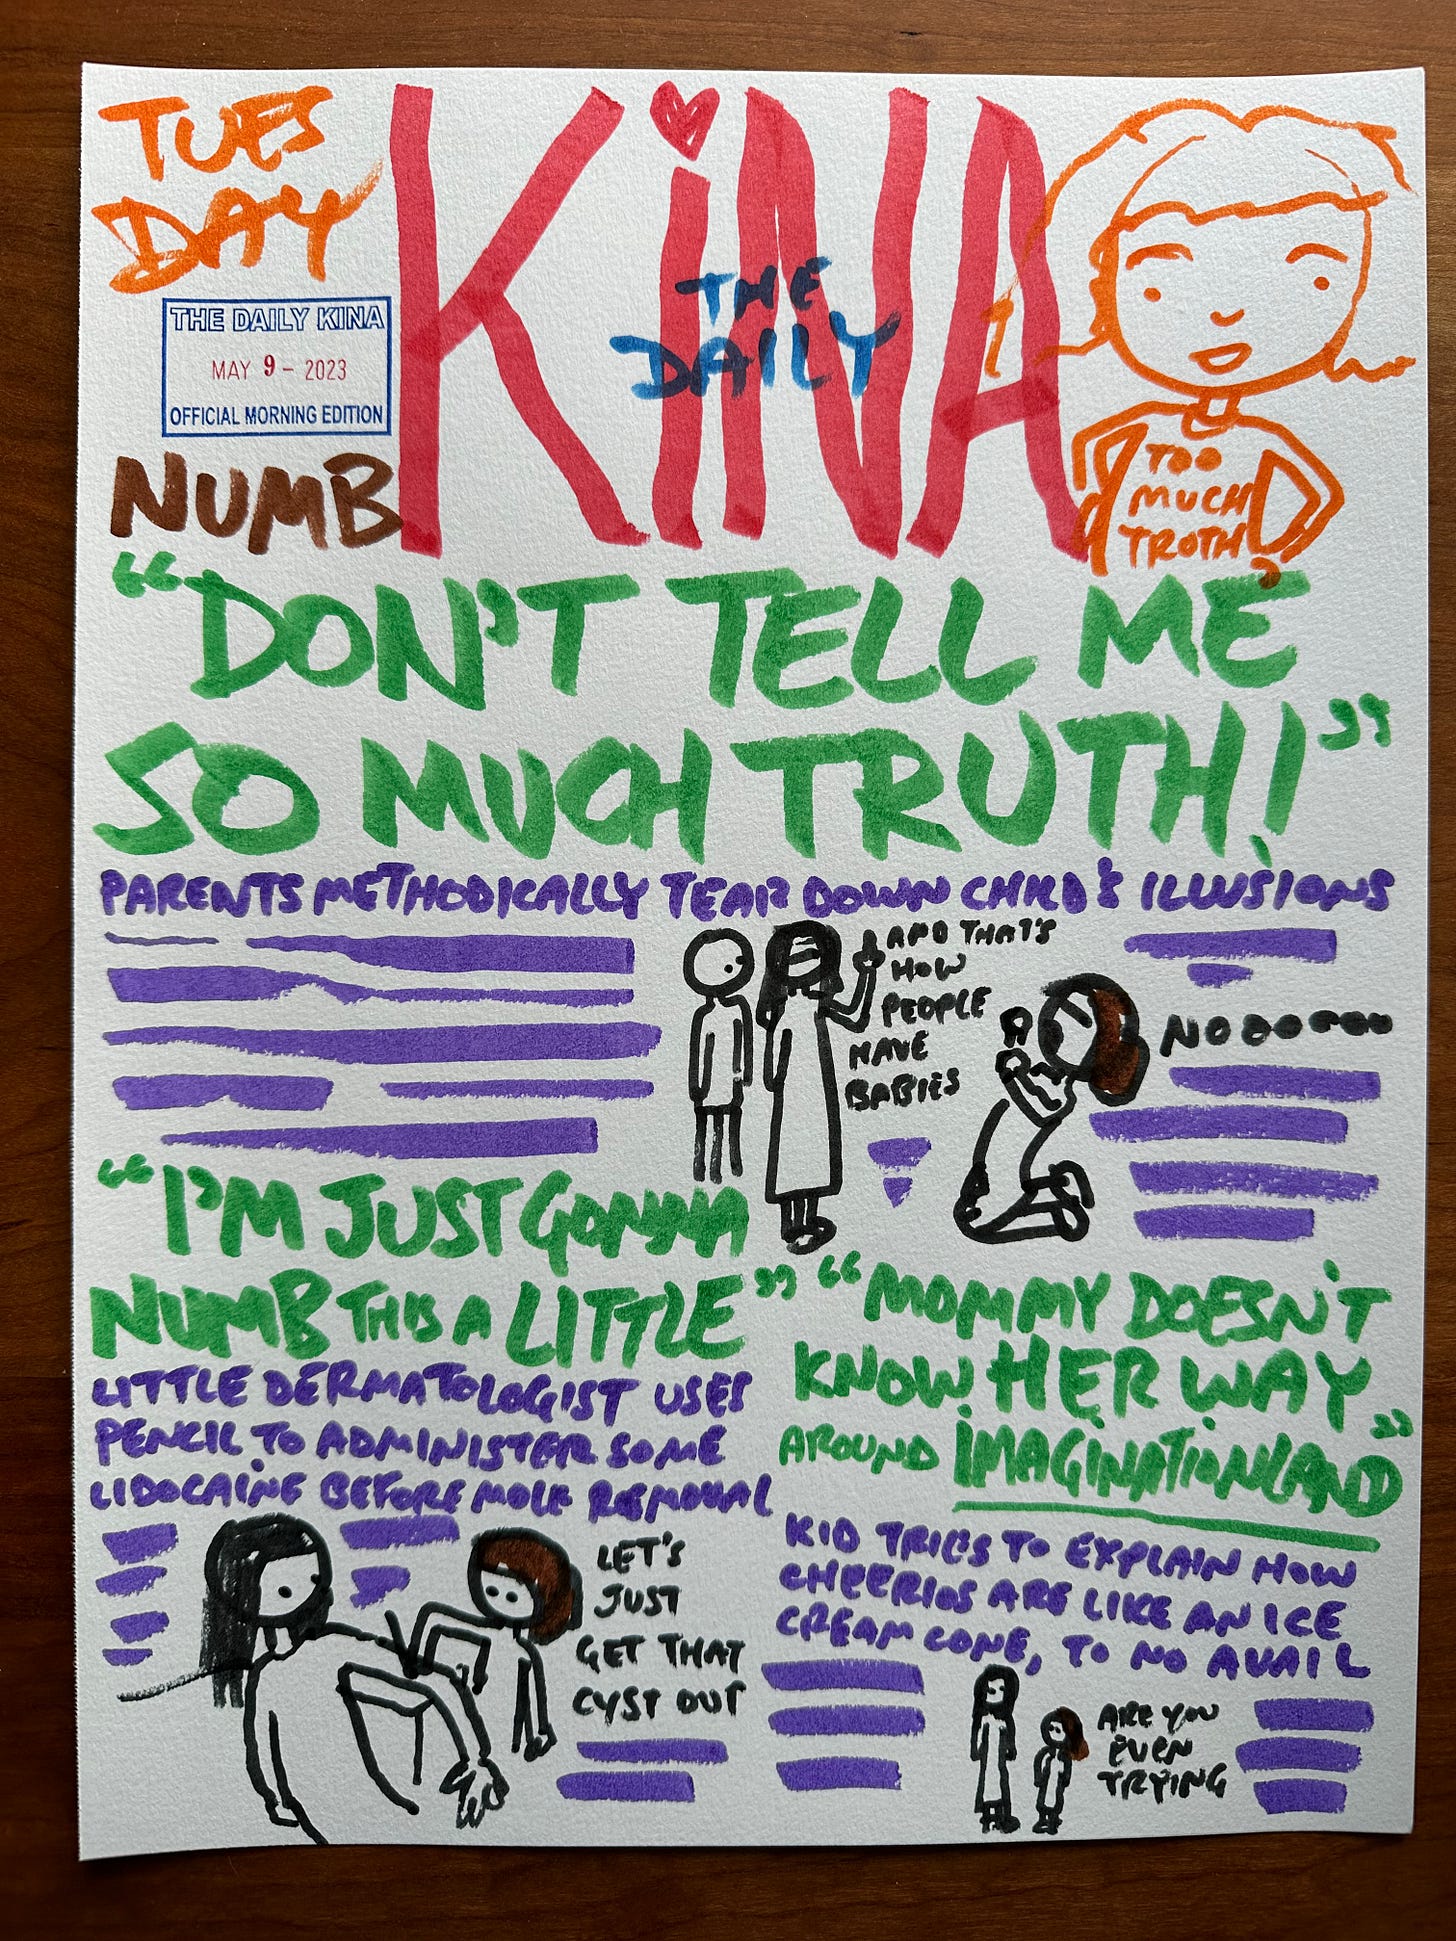 TUES
DAY
KiNA
THE
DAILY
THE DAILY KINA
MAY 9 - 2023
OFFICIAL MORNING EDITION
NUMB
TOO
MUCH
TROTH
"DON'T TELL ME
SO MUCH TRUTH!"
PARENTS METHODICALLY TEAR DOWN CHILD'S ILLUSIONS
AND THAT'S
HOW
PEOPLE
HAVE
BABIES
NOOOOOOO
"I'M JUST GONNA
NUMB THIS A LITTLE"
LITTLE DERMATOLOGIST USES
PENCIL TO ADMINISTER SOME
LIDOCAINE BEFORE MOLE REMOVAL
LET'S
JUST
GET THAT
CYST OUT
"MOMMY DOESN'T
KNOW HER WAY
AROUND IMAGINATIONLAND"
KID TRIES TO EXPLAIN HOW
CHEERIOS ARE LIKE AN ICE
CREAM CONE, TO NO AVAIL
ARE YOU
EVEN
TRYING